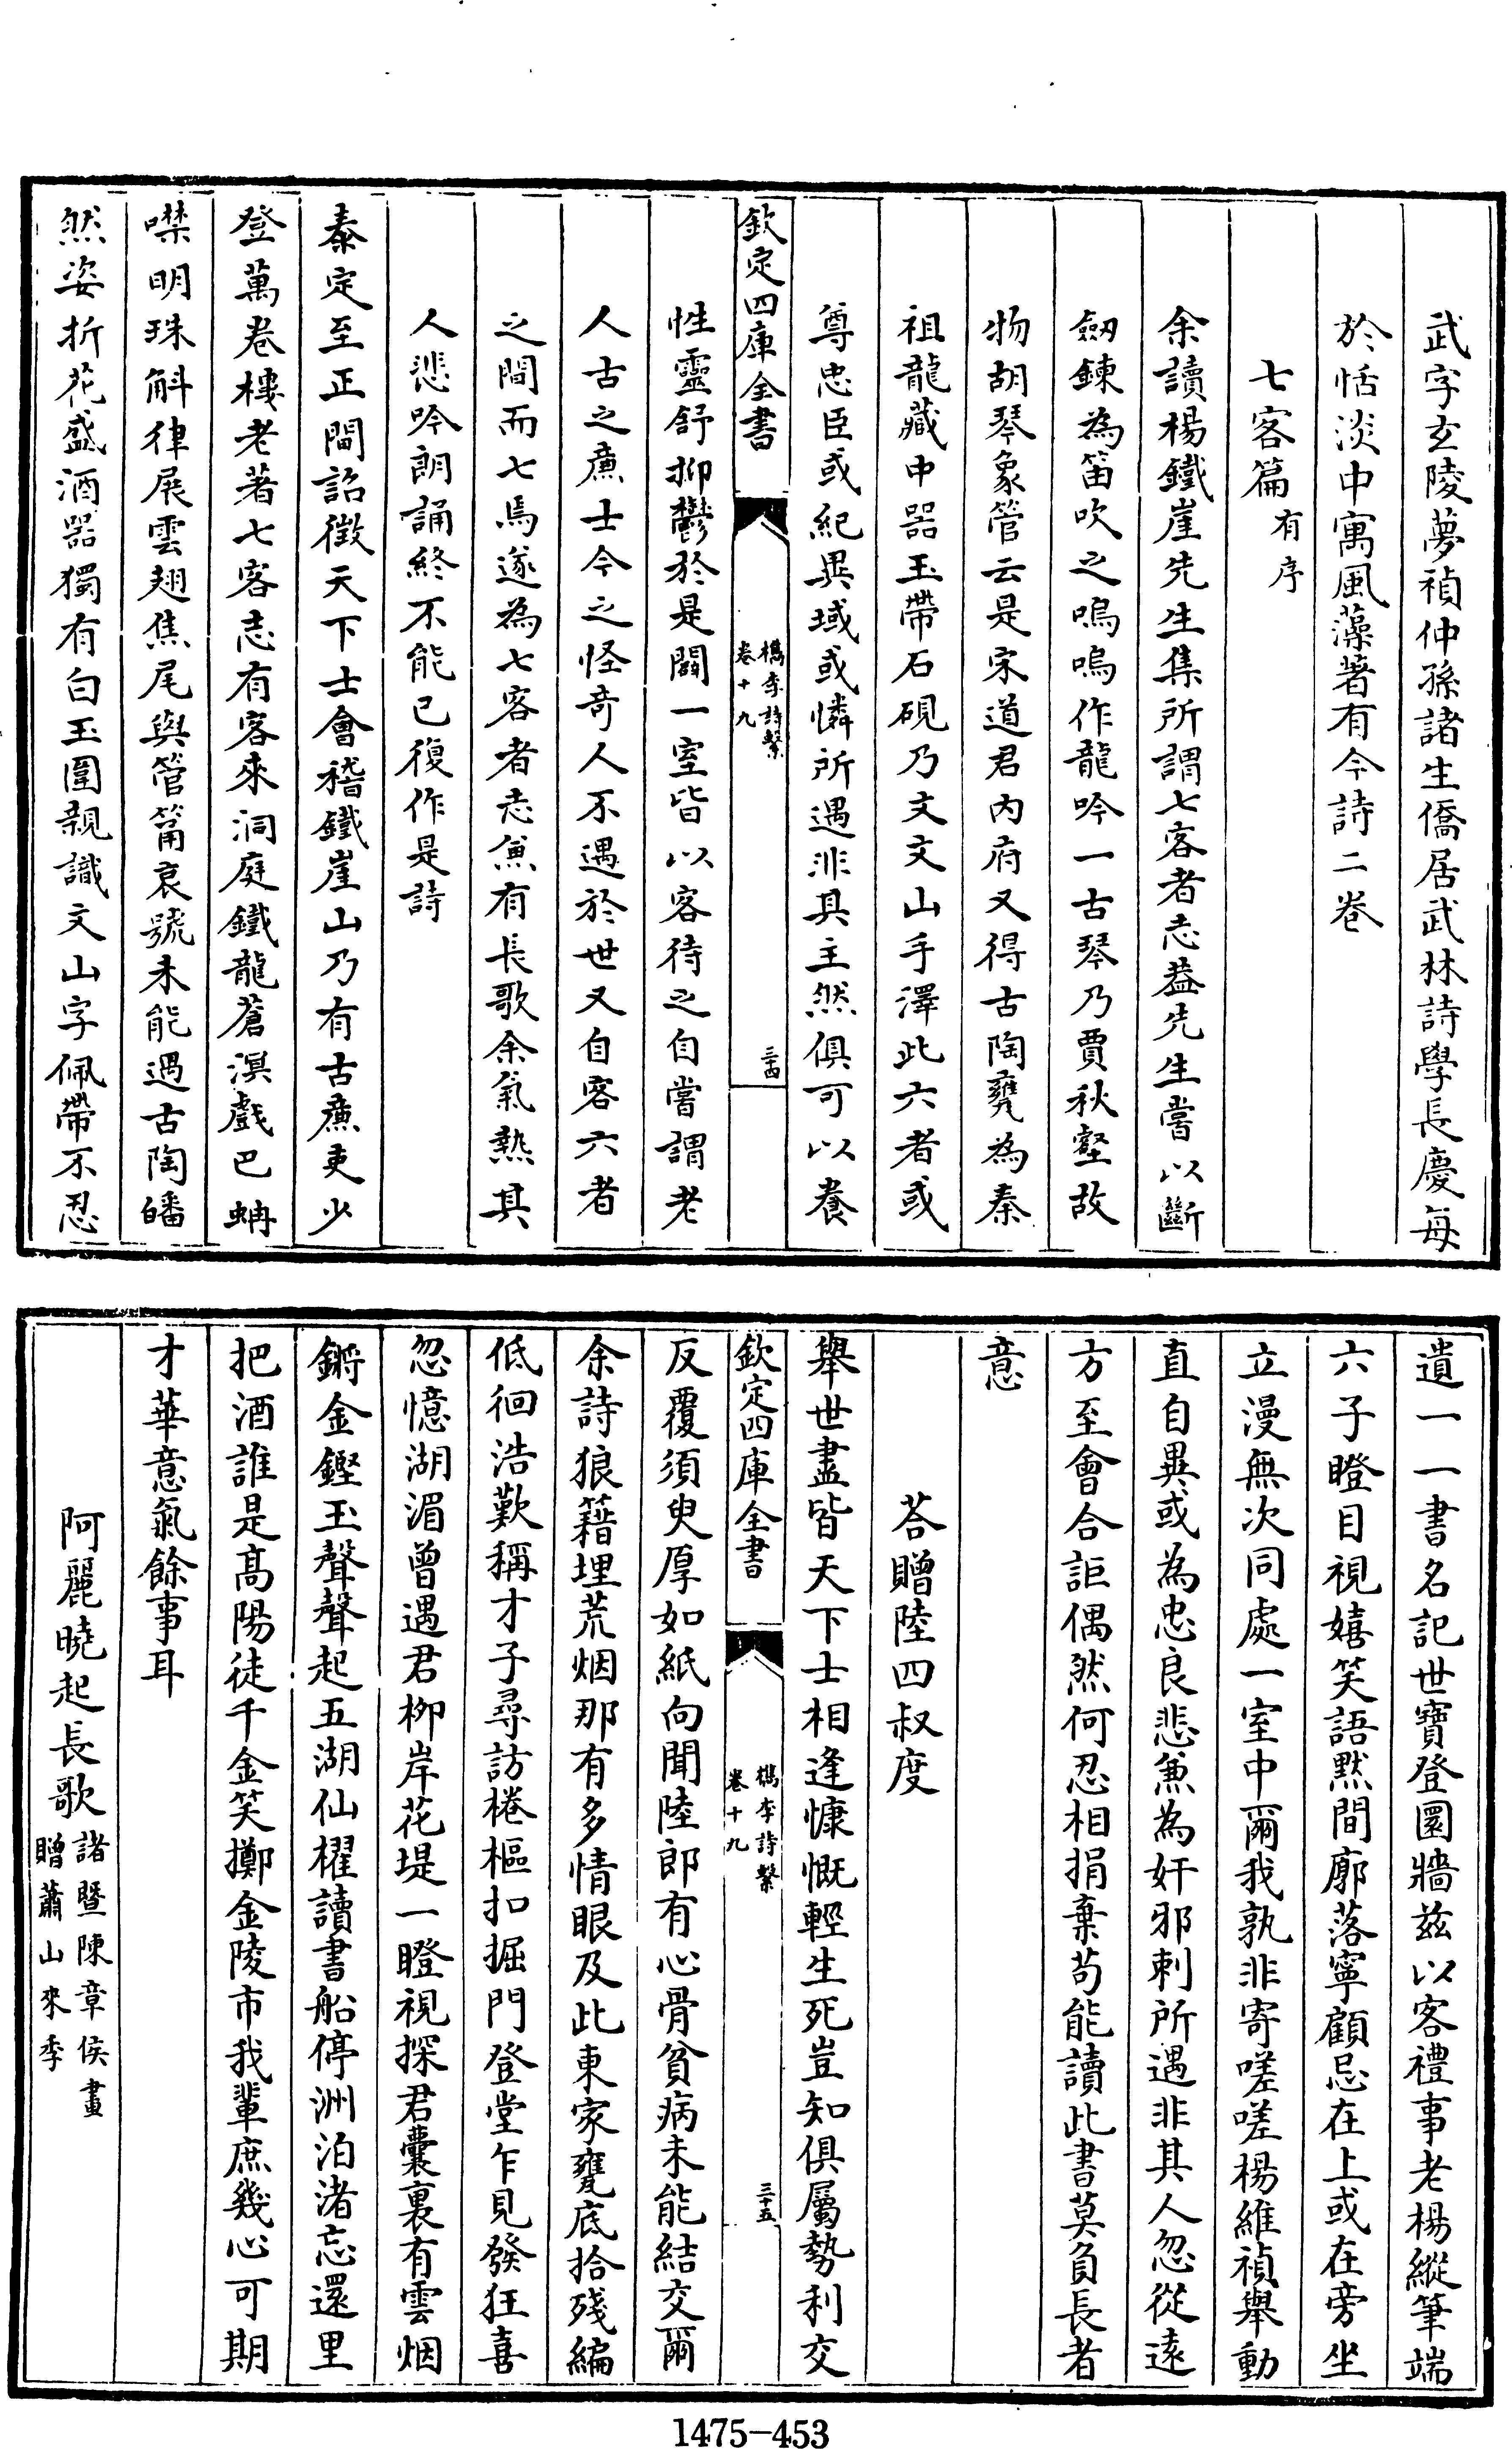 武字玄陵夢禎仲孫諸生僑居武林詩學長慶每
於恬淡中寓風藻著有今詩二卷
七客篇有序
余讀楊鐵崖先生集所謂七客者志葢先生嘗以斷
劔鍊為笛吹之嗚嗚作龍吟一古琴乃賈秋壑故
物胡琴象管云是宋道君内府又得古陶甕為秦
祖龍藏中器玉帶石硯乃文文山手澤此六者或
尊忠臣或紀異域或憐所遇非其主然俱可以養
欽定四庫全書
檇李詩繫
卷十九
三十四
性靈舒抑鬱於是闢一室皆以客待之自嘗謂老
人古之廉士今之怪奇人不遇於世又自客六者
之間而七焉遂為七客者志兼有長歌余氣熱其
人悲吟朗誦終不能已復作是詩
泰定至正間詔徵天下士會稽鐵崖山乃有古廉吏少
登萬卷樓老著七客志有客來洞庭鐵龍蒼溟戲巴蚺
噤明珠斛律展雲翅焦尾與管筩哀號未能遇古陶皤
然姿折花盛酒器獨有白玉圍親識文山字佩帶不忍
遺一一書名記世寶登圜牆兹以客禮事老楊縱筆端
六子瞪目視嬉笑語黙間廓落寧顧忌在上或在旁坐
立漫無次同處一室中爾我孰非寄嗟嗟楊維禎舉動
直自異或為忠良悲兼為奸邪刺所遇非其人忽從遠
方至會合詎偶然何忍相捐棄苟能讀此書莫負長者
意
荅贈陸四叔度
舉世盡皆天下士相逢慷慨輕生死豈知俱屬勢利交
欽定四庫全書
檇李詩繫
卷十九
三十五
反覆須臾厚如紙向聞陸郎有心骨貧病未能結交爾
余詩狼籍埋荒烟那有多情眼及此東家甕底拾殘編
低徊浩歎稱才子尋訪棬樞扣掘門登堂乍見發狂喜
忽憶湖湄曾遇君柳岸花堤一瞪視探君囊裏有雲烟
鏘金鏗玉聲聲起五湖仙櫂讀書船停洲泊渚忘還里
把酒誰是高陽徒千金笑擲金陵市我輩庶幾心可期
才華意氣餘事耳
阿麗曉起長歌諸暨陳章侯畫
贈蕭山來季
1475-453